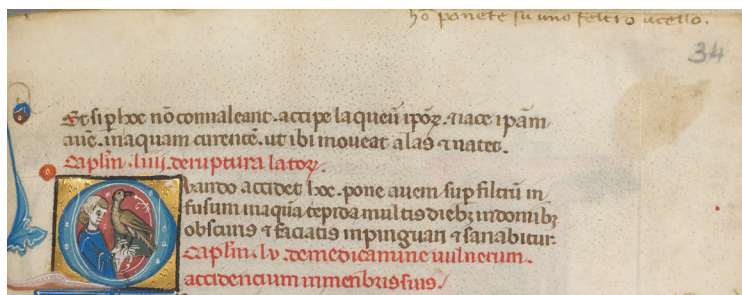 hō ponete su uno feltro ucello.
34
Et si ꝑ hoc nō conualeant. accipe laqueū ipoꝝ. ⁊ iace ipām
auē. in aquam curentē. ut ibi moueat alas ⁊ natet.
Caplm̄ .liiii. de ruptura latoꝝ.
Quando accidet hoc. pone auem sup filtrū in
fusum in aqua tepida multis diebꝫ in domibꝫ
obscuris ⁊ faciatis inpinguari ⁊ sanabitur.
Caplm̄ .lv. de medicamine uulnerum.
accidencium in menbris suis.